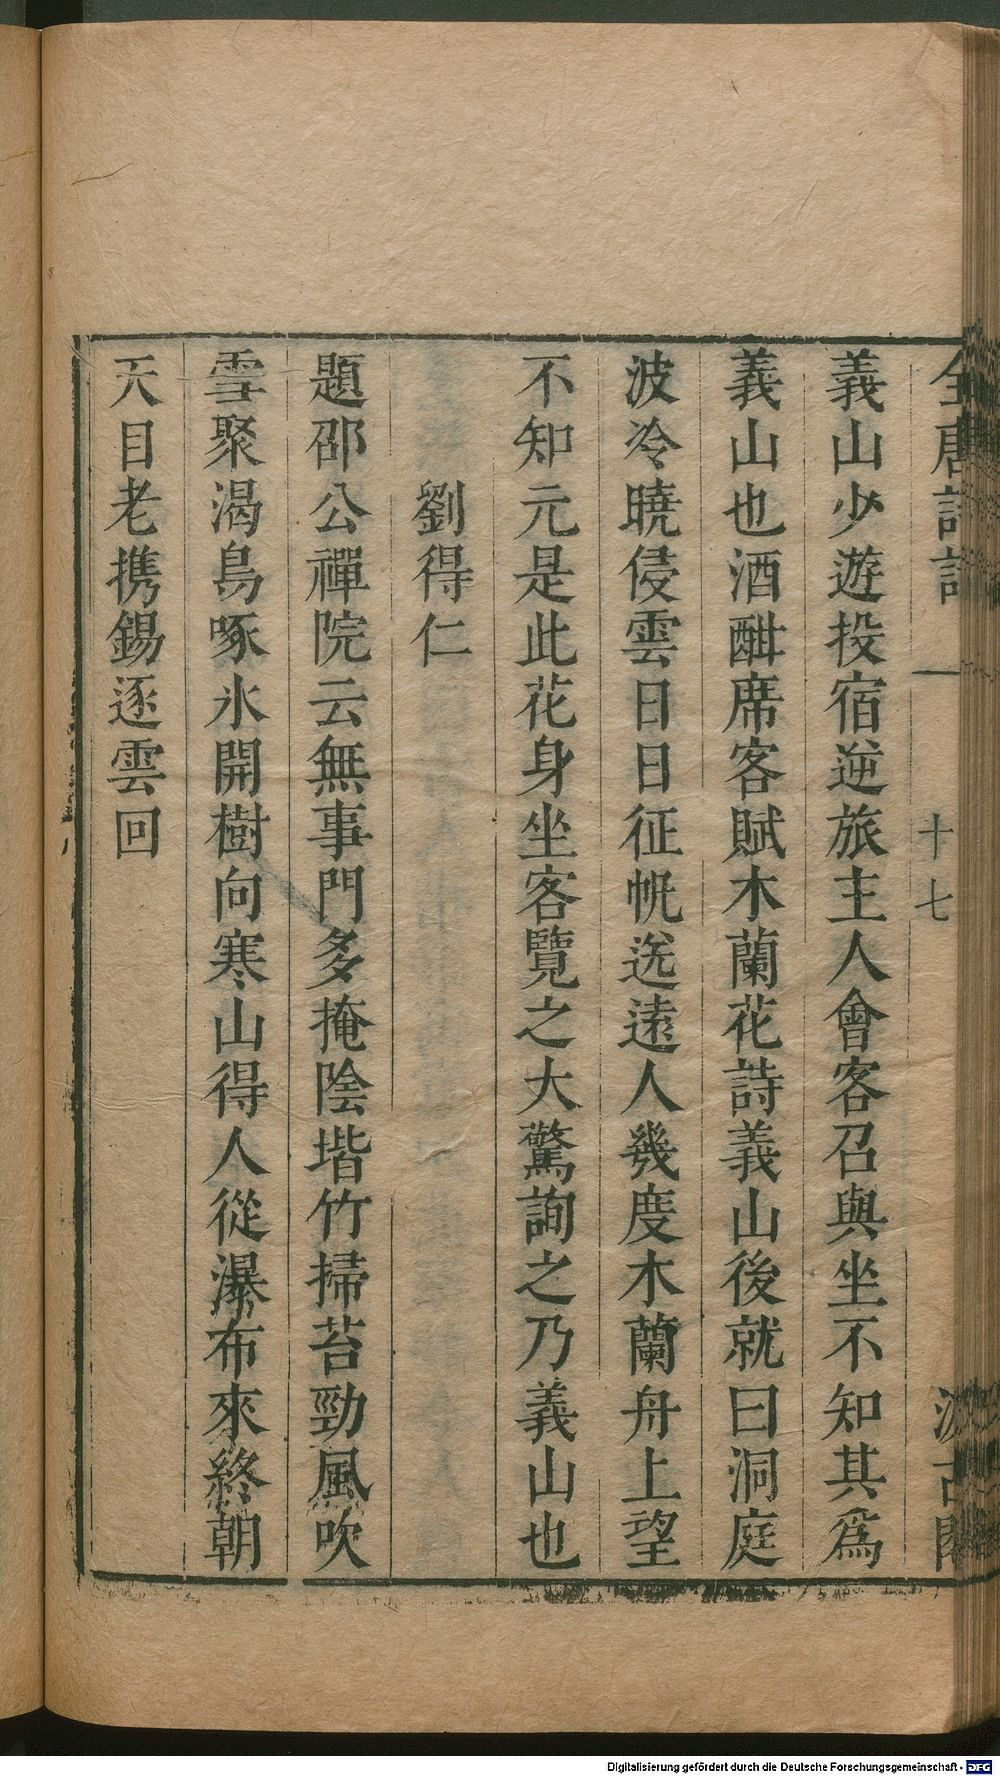 全唐詩話 一 十七 汲古閣
義山少遊投宿逆旅主人會客召與坐不知其爲
義山也酒酣席客賦木蘭花詩義山後就曰洞庭
波冷曉侵雲日日征帆送遠人幾度木蘭舟上望
不知元是此花身坐客覽之大驚詢之乃義山也
劉得仁
題邵公禪院云無事門多掩陰堦竹掃苔勁風吹
雪聚渴鳥啄氷開樹向寒山得人從瀑布來終朝
天目老携錫逐雲回
Digitalisierung gefördert durch die Deutsche Forschungsgemeinschaft - DFG